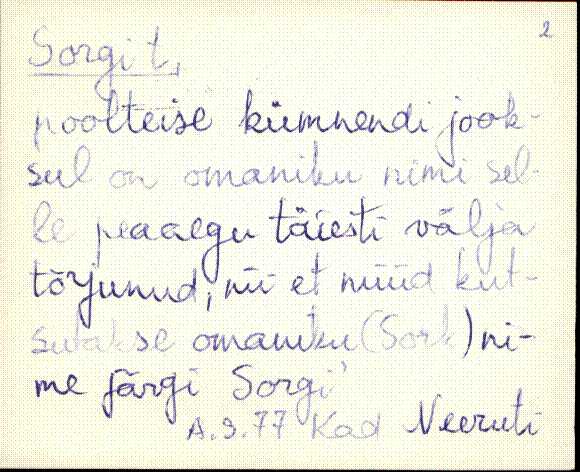 2
Sorgi t.
poolteise kümnendi jook-
sul on omaniku nimi sel-
le peaaegu täiesti välja
tõrjunud, nii et nüüd kut-
sutakse omaniku (Sork) ni-
me järgi Sorgi'
A.S. 77 Kad Neeruti